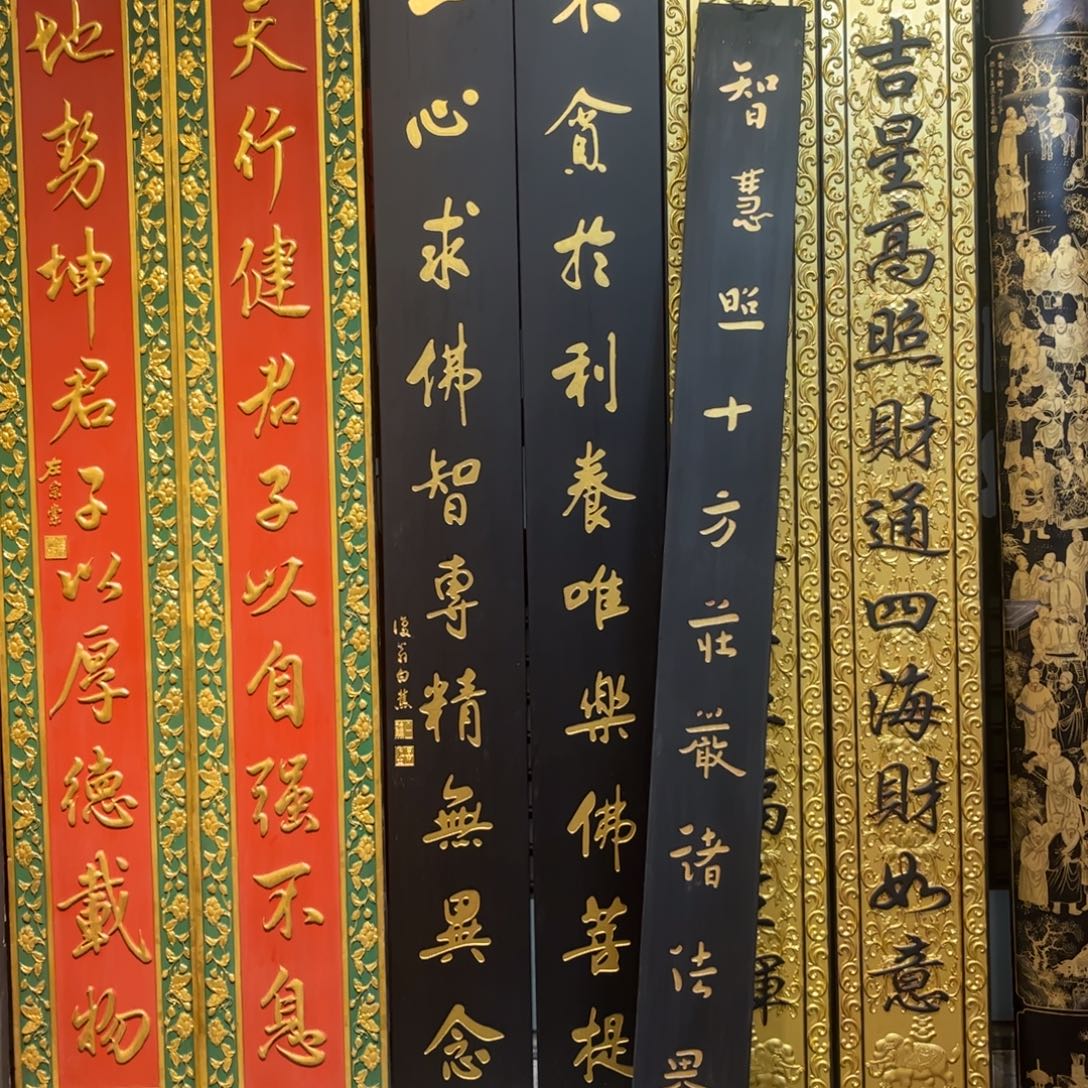 吉星高照財通四海財如意
智慧照十方莊嚴諸法界
不貪於利養唯樂佛菩提
一心求佛智專精無異念
復翁白蕉
天行健君子以自强不息
地勢坤君子以厚德載物
左宗棠